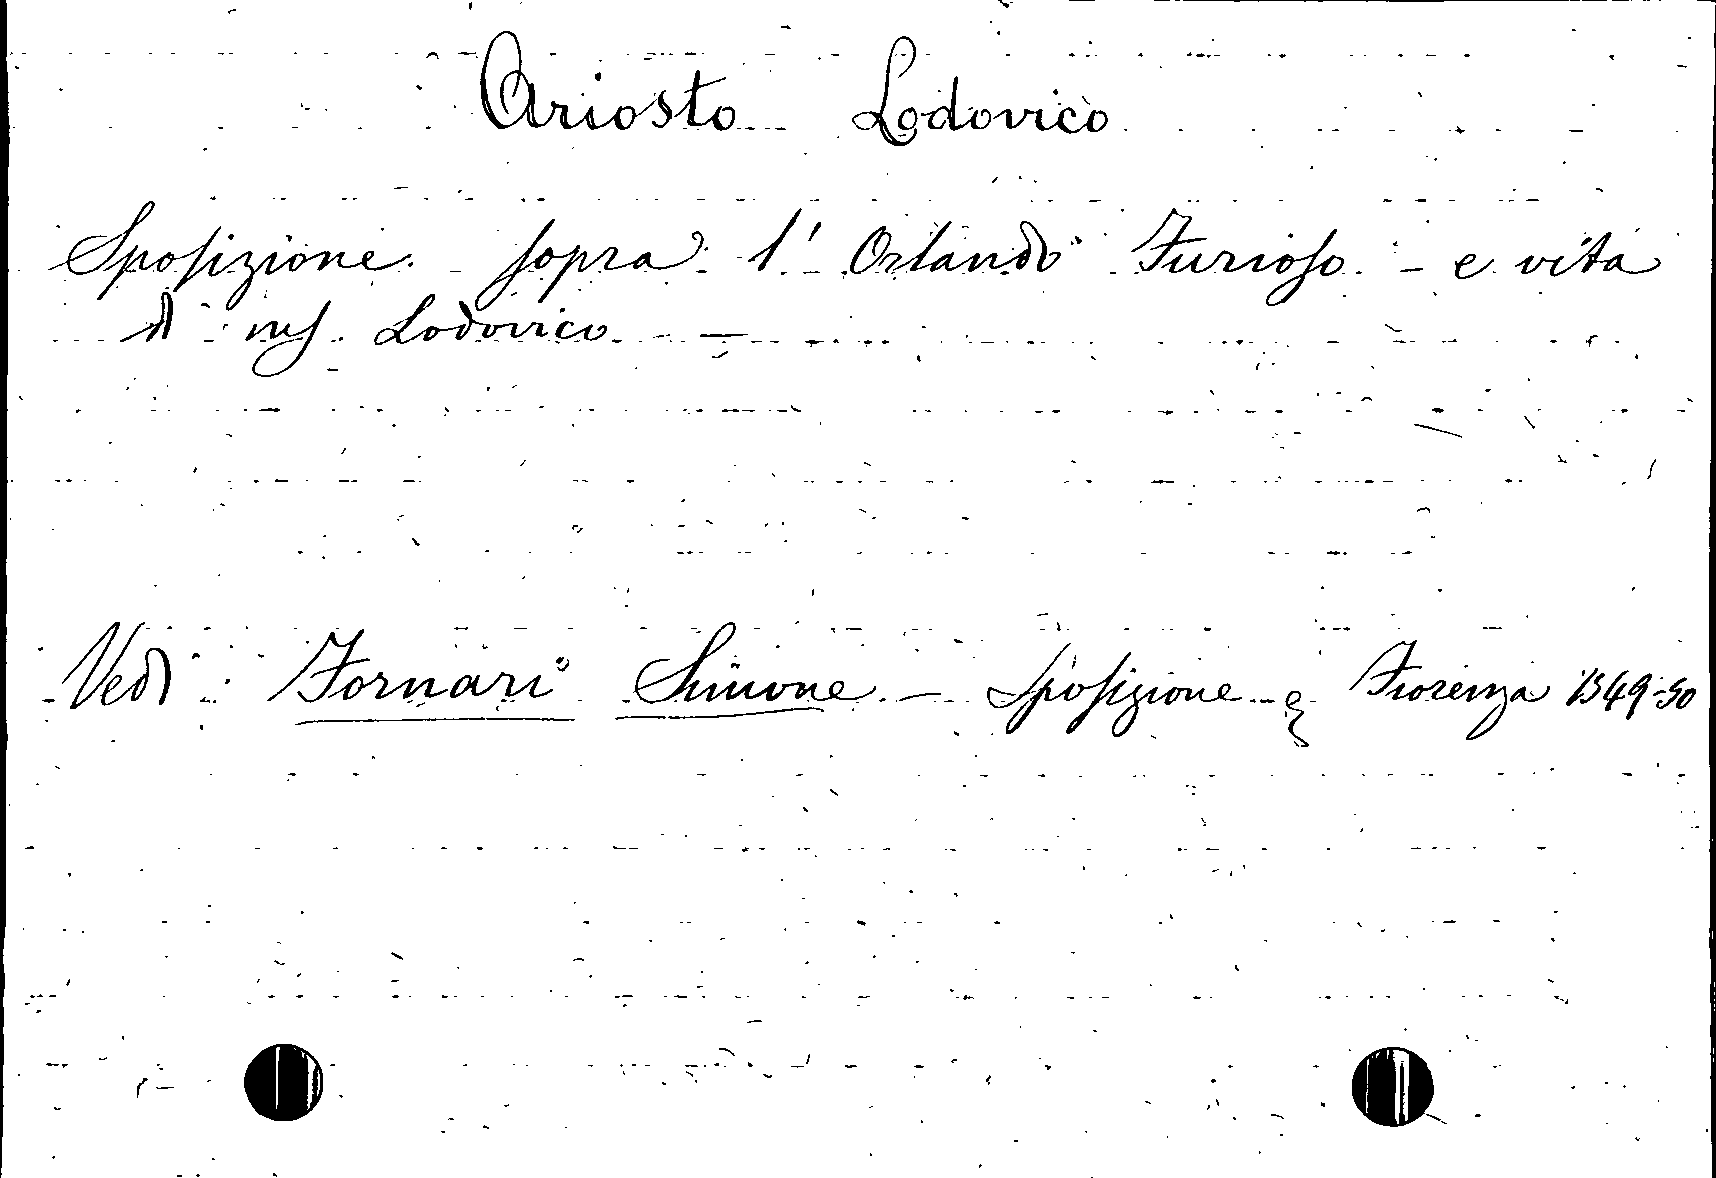 Ariosto Lodovico
Sposizione sopra l' Orlando Furioso - e vita
di mes. Lodovico -
Vedi Fornari Simone - Sposizione Fiorenza 1549-50